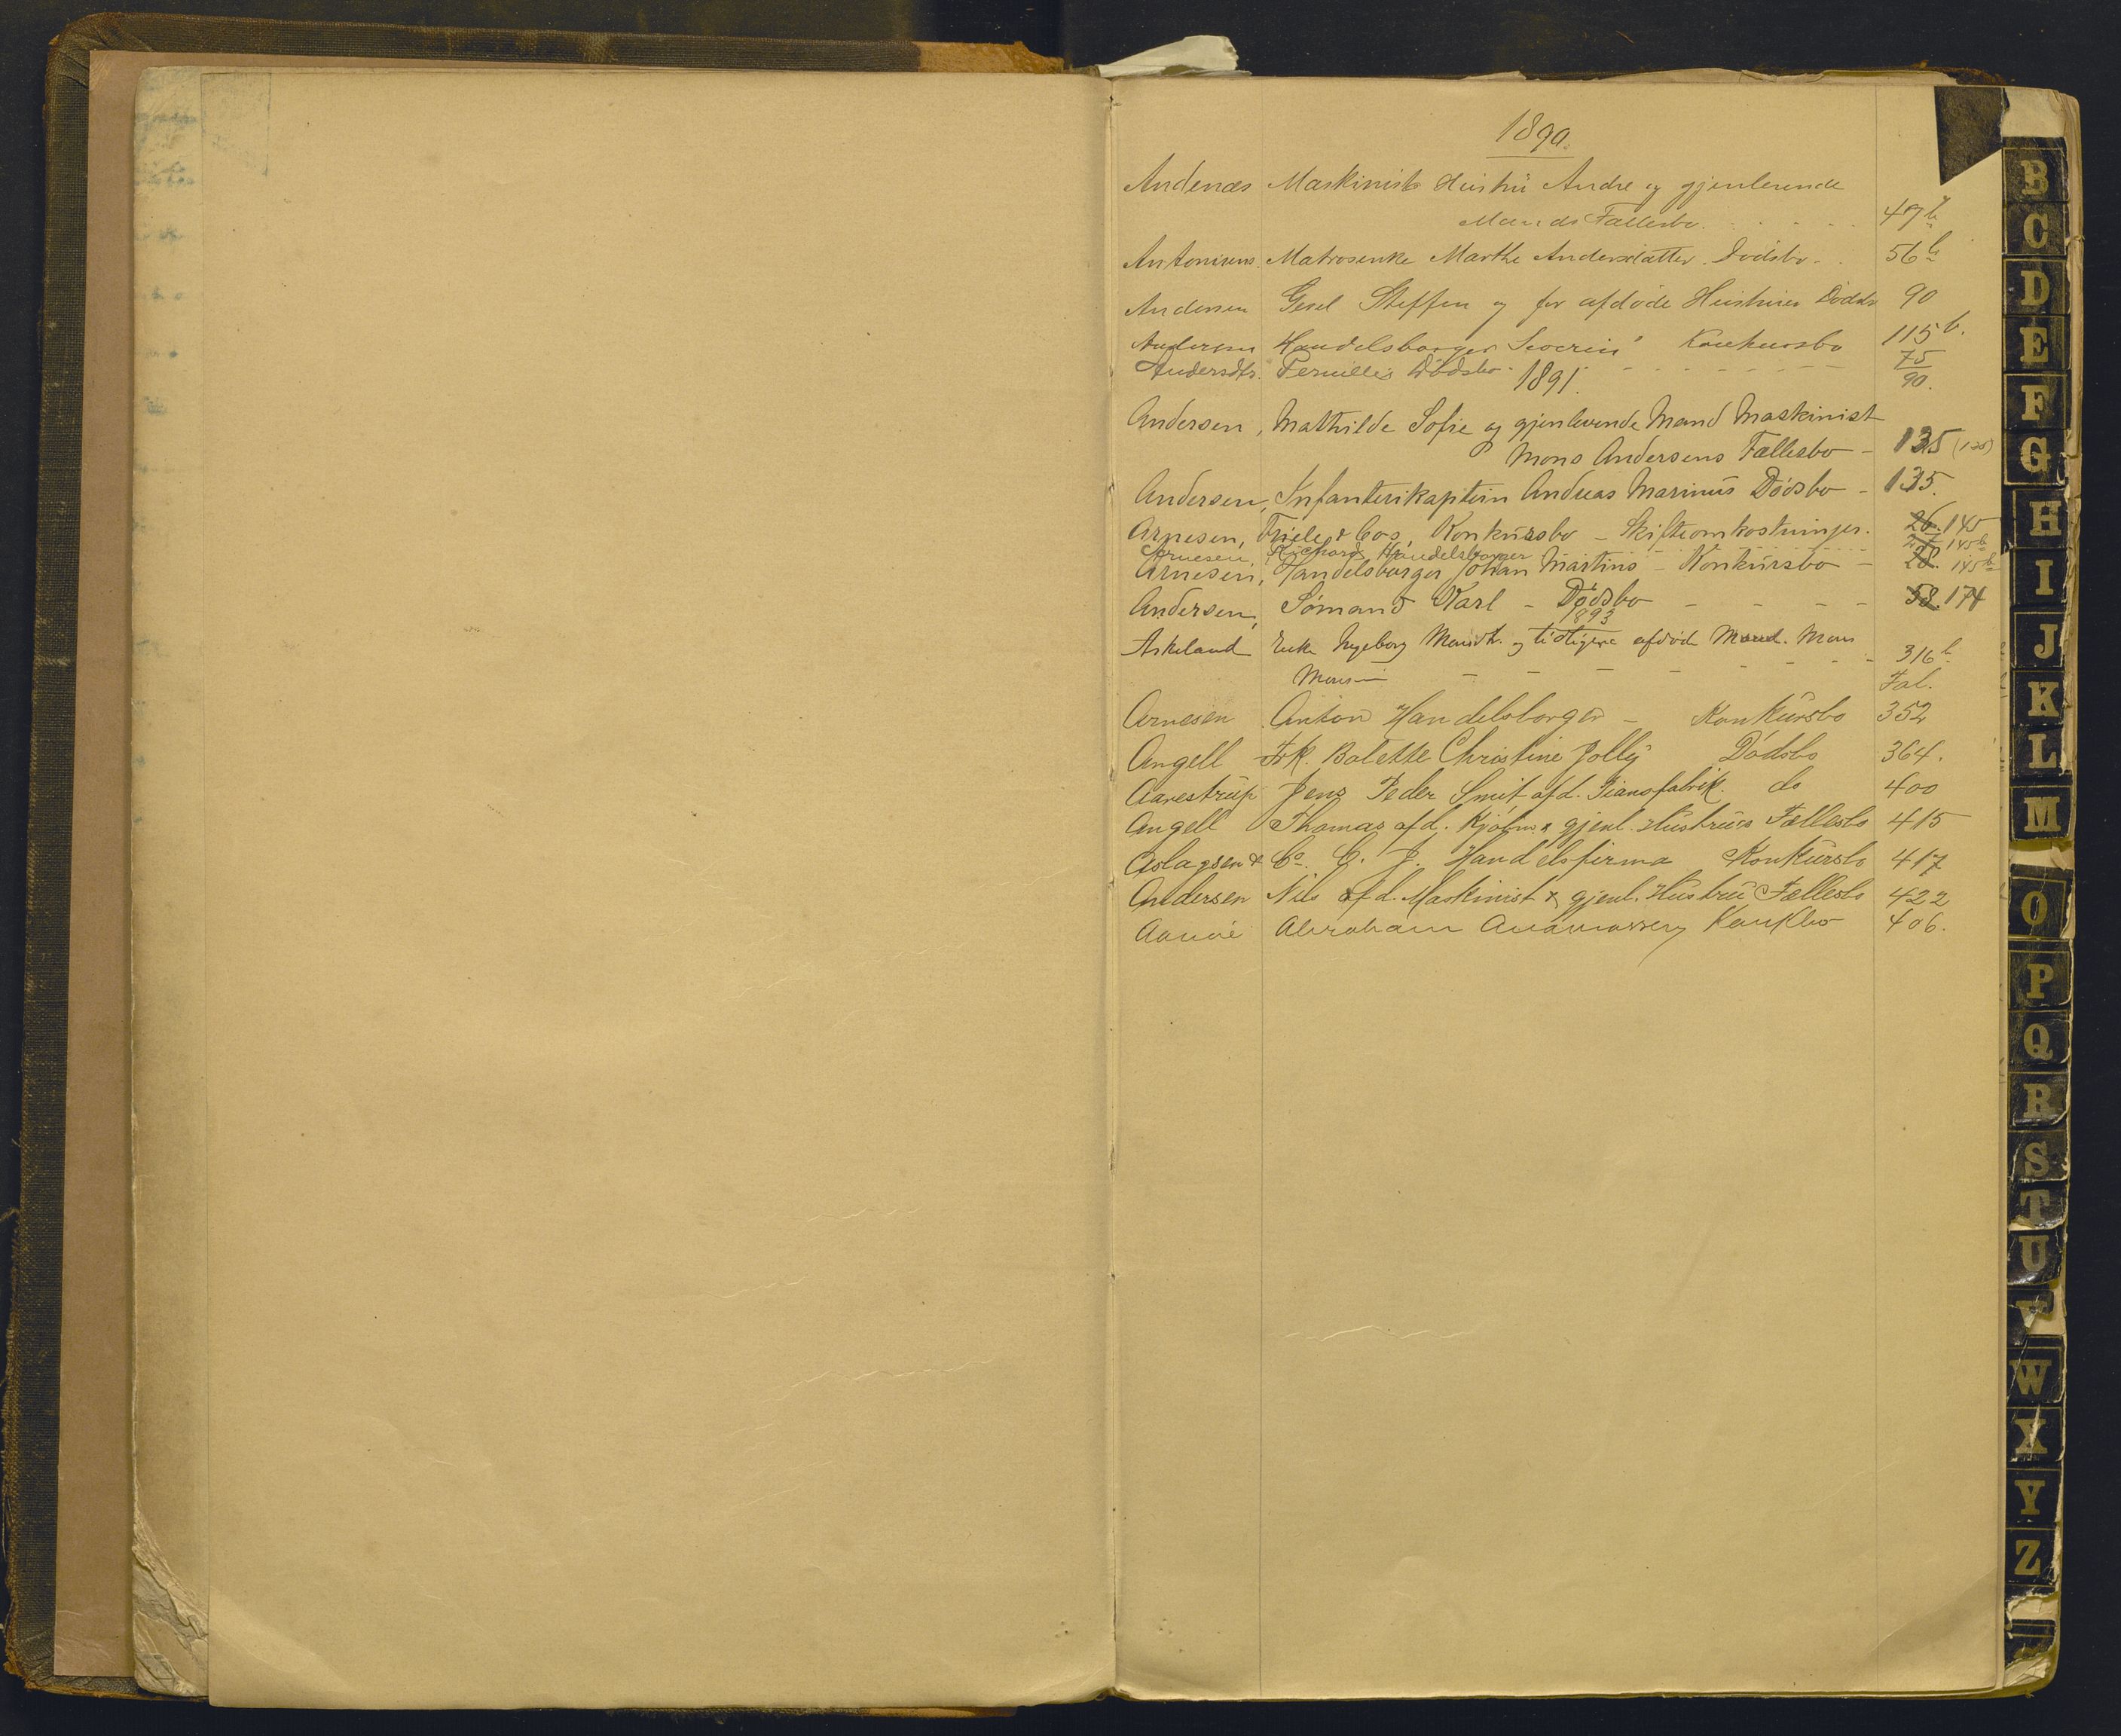 1890.
Andenæs Maskinist Hustru Andre og gjenlevende
Mands Fællesbo. 47 b
Antonisens Matrosenke Marthe Andersdatter Dødsbo 56 b
Andersen Steffen og før afdøde Hustrues Dødsbo 90
Andersen Handelsborger Severin Konkursbo 115 b.
Andersdtr. Pernilles Dødsbo 75
90.
1891.
Andersen, Mathilde Sofie og gjenlevende Mand Maskinist
Mons Andersens Fællesbo 135 (125)
Andersen, Infanterikaptein Andreas Marinus Dødsbo 135.
Arnesen, Friele & Cos, Konkursbo - Skifteomkostninger. 26. 145
Arnesen, Richard, Handelsborger 145 b
Arnesen, Handelsborger Johan Martins - Konkursbo - 28. 145 b
Andersen, Sömand Karl - Dødsbo 58. 174
1893
Askeland Enke Ingeborg Monsdt. og tidligere afdøde Mand. Mons
Monsen 316 b.
Fol.
Arnesen Anton Handelsborger - Konkursbo 352
Angell Frk. Bolette Christine Jolly Dödsbo 364.
Aarestrup Jens Peder Smit afd. Pianofabrik. do 400
Angell Thomas afd. Kjöbm. & gjenl. Hustrues Fællesbo 415
Aslagsen & Co. C. J. Handelsfirma Konkursbo 417
Andersen Nils afd. Maskinist & gjenl. Hustru Fællesbo 422
Abraham 406.
B
C
D
E
F
G
H
I
J
K
L
M
O
P
Q
R
S
T
U
V
W
X
Y
Z